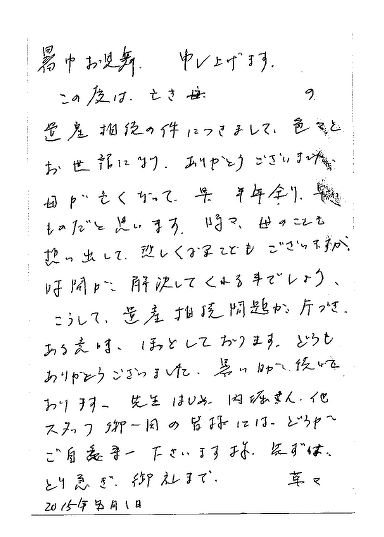 暑中お見舞、申し上げます。
この度は、亡き母 の
遺産相続の件につきまして、色々と
お世話になり、ありがとうございました。
母が亡くなって、早 半年余り、早い
ものだと思います。時々、母のことも
想い出して、恋しくなることも ございますが、
時間が、解決してくれる事でしょう、
こうして、遺産相続問題が、片づき、
ある意味、ほっとしております。どうも
ありがとうございました。暑い日が、続いて
おります、先生はじめ、内堀さん、他
スタッフ御一同の皆様には、どうか
ご自愛下さいます様、先ずは、
とり急ぎ、御礼まで。 草々
2015年8月1日